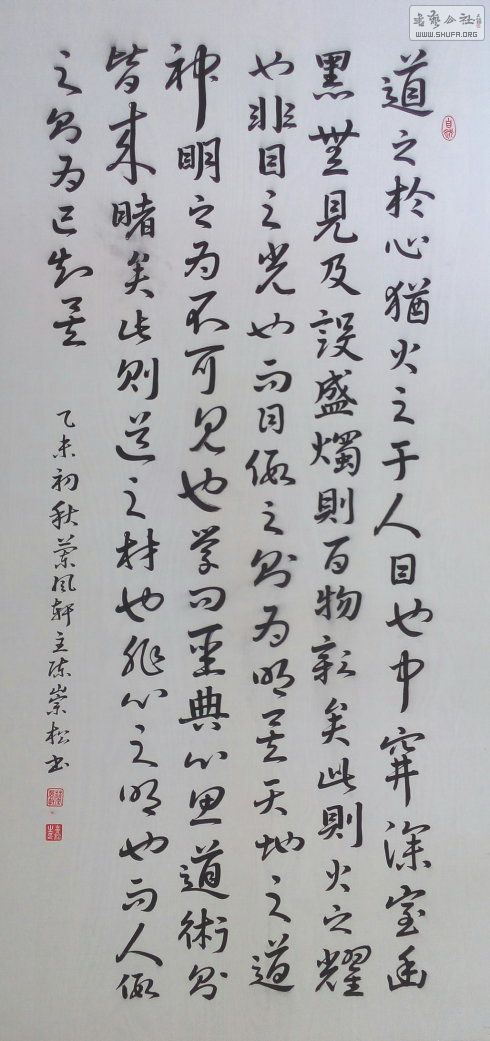 道之於心猶火之于人目也中穽深室幽
黑無見及設盛燭則百物彰矣此則火之耀
也非目之光也而目假之則為明矣天地之道
神明之為不可見也学问圣典心思道術則
皆来睹矣此则道之材也非心之明也而人假
之则为己知矣
乙未初秋蘭风轩主陈崇松书
書藝公社
WWW.SHUFA.ORG